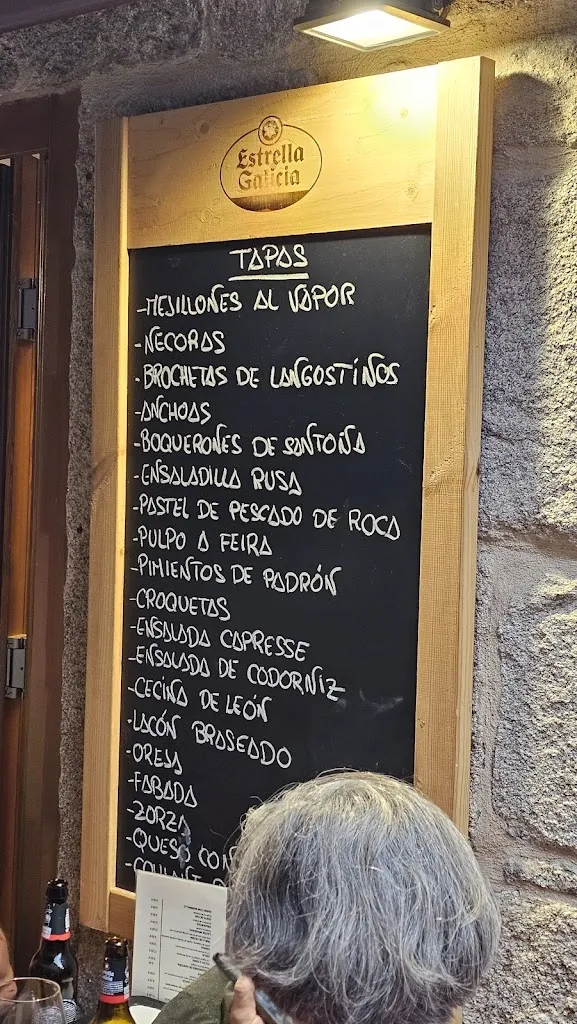 Estrella
Galicia
TAPAS
-MEJILLONES AL VAPOR
-NECORAS
-BROCHETAS DE LANGOSTÍNOS
-ANCHOAS
-BOQUERONES DE SANTOÑA
-ENSALADILLA RUSA
-PASTEL DE PESCADO DE ROCA
-PULPO A FEIRA
-PIMIENTOS DE PADRÓN
-CROQUETAS
-ENSALADA CAPRESSE
-ENSALADA DE CODORNIZ
-CECINA DE LEÓN
-LACÓN BRASEADO
-OREJA
-FABADA
-ZORZA
-QUESO CON